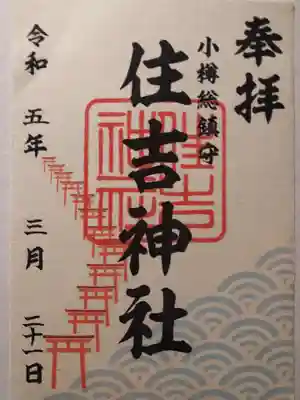 奉拝
小樽総鎮守
住吉神社
住吉神社
令和五年三月二十一日